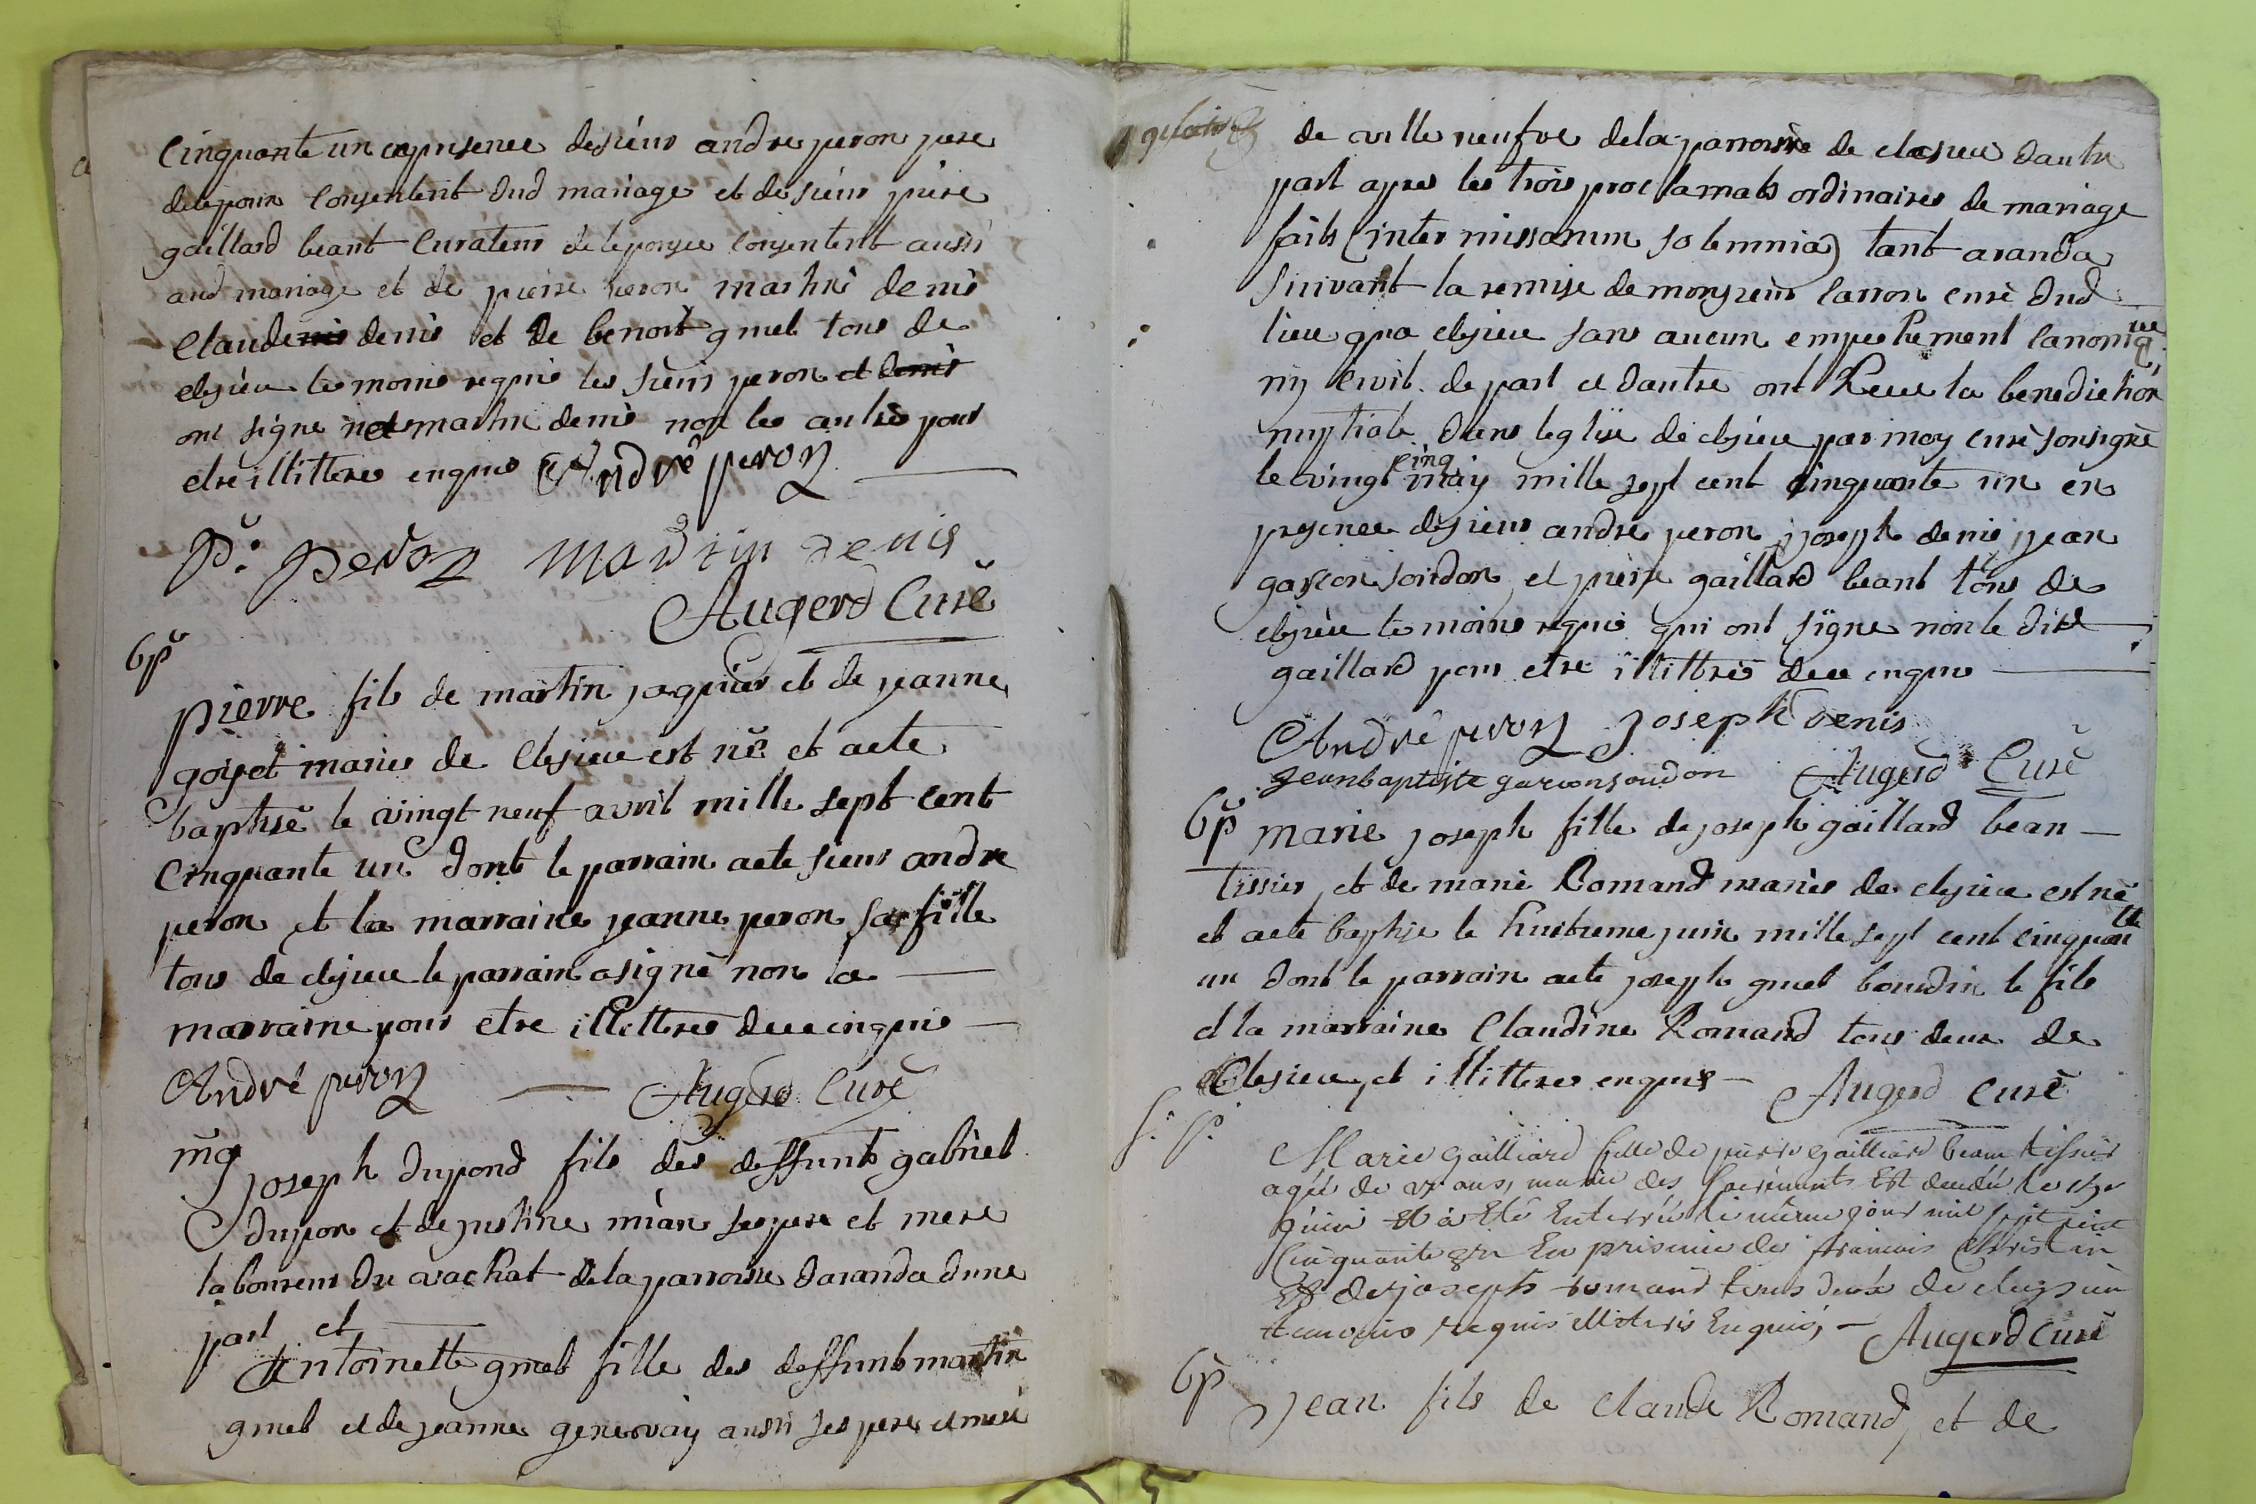 Cinquante un en presence de sieur andre peron pere
de lepoux consentent dud mariage et de sieur pierre
gaillard beant curateur de leponsee consentent aussi
aud mariage et de pierre peron martin denis
Claude denis denis et de benoit gmel tous de
clesieu temoins requis les sieurs peron et denis
ont signe martin denis non les autres pour
etre illitteres enquis André peron
p. peron martin denis
Augerd Curé
bp
pierre fils de martin jaquier et de jeanne
goyet maries de Clesieu est né et aete
baptisé le vingt neuf avril mille sept cent
Cinquante un dont le parrain aete sieur andre
peron et la marraine jeanne peron sa fille
tous de clesieu le parrain a signé non la
marraine pour etre illitteres de ce enquis
André peron Augerd Curé
mg
joseph dupond fils des deffunts gabriel
dupon et de justine mian ses pere et mere
laboureur du vachat de la parroisse daranda dune
part et
Antoinette gmel fille des deffunts martin
gmel et de jeanne genevay aussi ses pere et mere
de ville neufve de la parroisse de clesieu dautre
part apres les trois proclamats ordinaires de mariage
faits (inter missarum solemnia) tant aranda
suivant la remise de monsieur Carron curé dud
lieu qua clesieu sans aucun empechement canonique
ny civil de part et dautre ont Receu la benediction
nuptiale dans leglise de clesieu par moy curé sousigné
le vingt cinq may mille sept cent cinquante un en
presence de sieur andre peron joseph denis jean
garçon soudon et pierre gaillard beant tous de
clesieu temoins requis qui ont signe non le dit
gaillard pour etre illittres de ce enquis
André peron joseph Denis
Jeanbaptiste garconsoudon Augerd Curé
bp marie joseph fille de joseph gaillard bean
tissier, et de marie Romand maries de clesieu est né
et aete baptise le huitieme juin mille sept cent cinquante
un dont le parrain aete joseph gmel bourdin le fils
et la marraine Claudine Romand tous deux de
Clesieu, et illitteres enquis Augerd curé
S. p.
Marie gailliard fille de pierre gailliard beam tissier
agée de ans, munie des sacrements Est decedée le
juin Et a Eté Enterrée le même jour mil sept cent
Cinquante un En presence de francois Christin
Et de joseph romand tous deux de cleysieu
temoins requis illiteres Enquis, Augerd Curé
bp
jean fils de claude Romand, et de